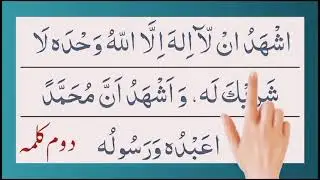 اَشْهَدُ اَنْ لَّآ اِلٰهَ اِلَّا اللّٰهُ وَحْدَهٗ لَا
شَرِيْكَ لَهٗ، وَاَشْهَدُ اَنَّ مُحَمَّدً
اعَبْدُهٗ وَرَسُولُهٗ
دوم کلمہ